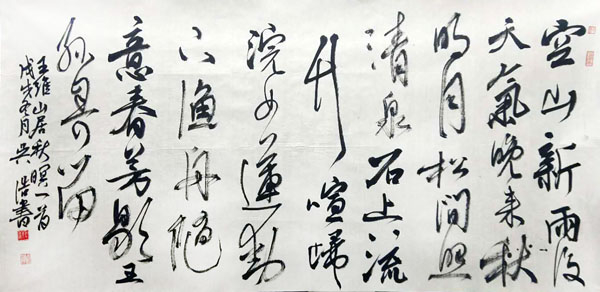 空山新雨後
天氣晚来秋
明月松間照
清泉石上流
竹喧歸
浣女蓮動
下漁舟隨
意春芳歇王
孫自可留
王維山居秋暝一首
戊戌冬月吴浩書